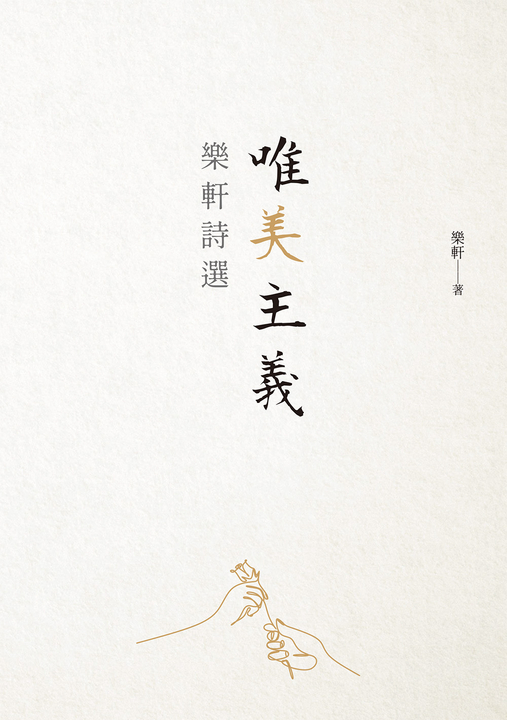 樂軒——著
唯美主義
樂軒詩選